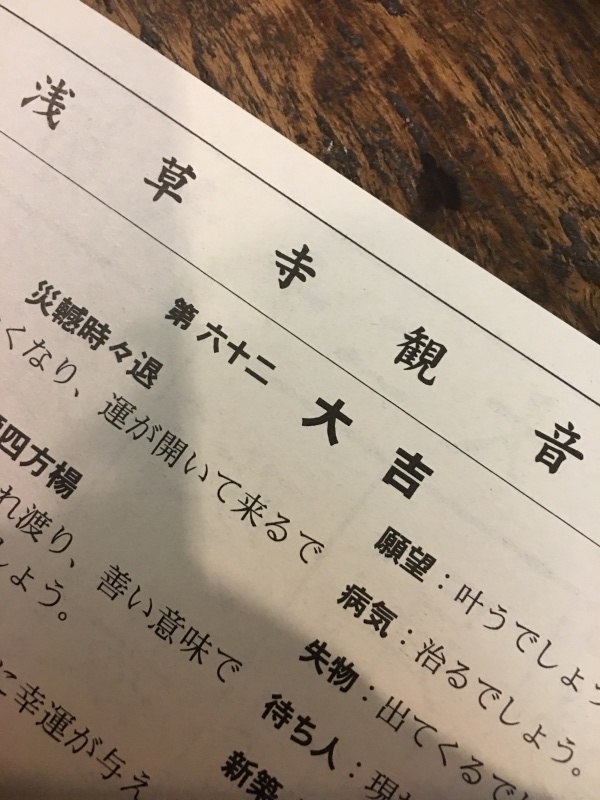 浅草寺観音
第六十二 大吉
災轗時々退
くなり、運が開いて来るで
四方楊
れ渡り、善い意味で
しょう。
に幸運が与え
願望：叶うでしょう
病気：治るでしょう。
失物：出てくるでし
待ち人：現
新築